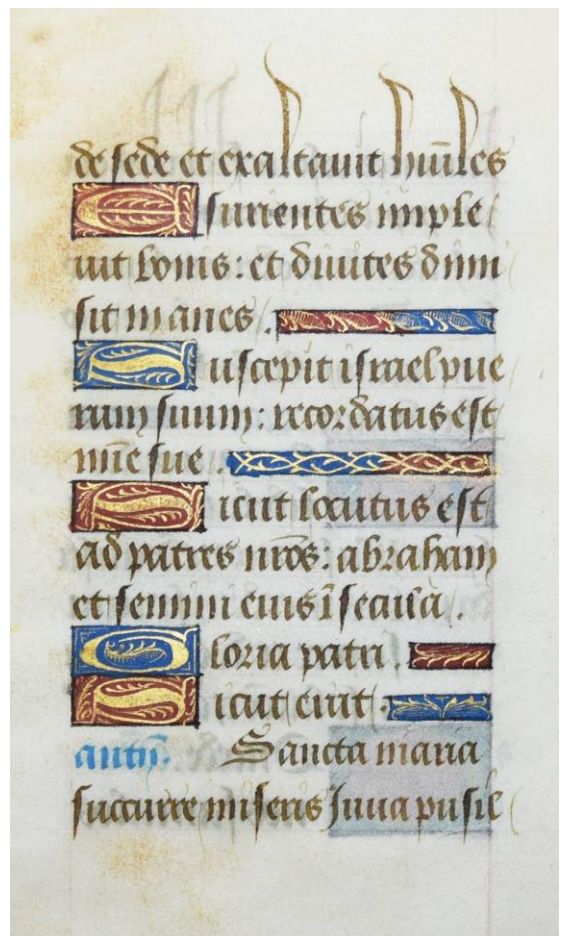 de sede et exaltavit hūīles
Esurientes imple
vit bonis: et divites dimi
sit inanes.
Suscepit israel pue
rum suum: recordatus est
mīe sue.
Sicut locutus est
ad patres nr̄os: abraham
et semini eius ī secula.
Gloria patri.
Sicut erat.
antī. Sancta maria
succurre miseris Juva pusil